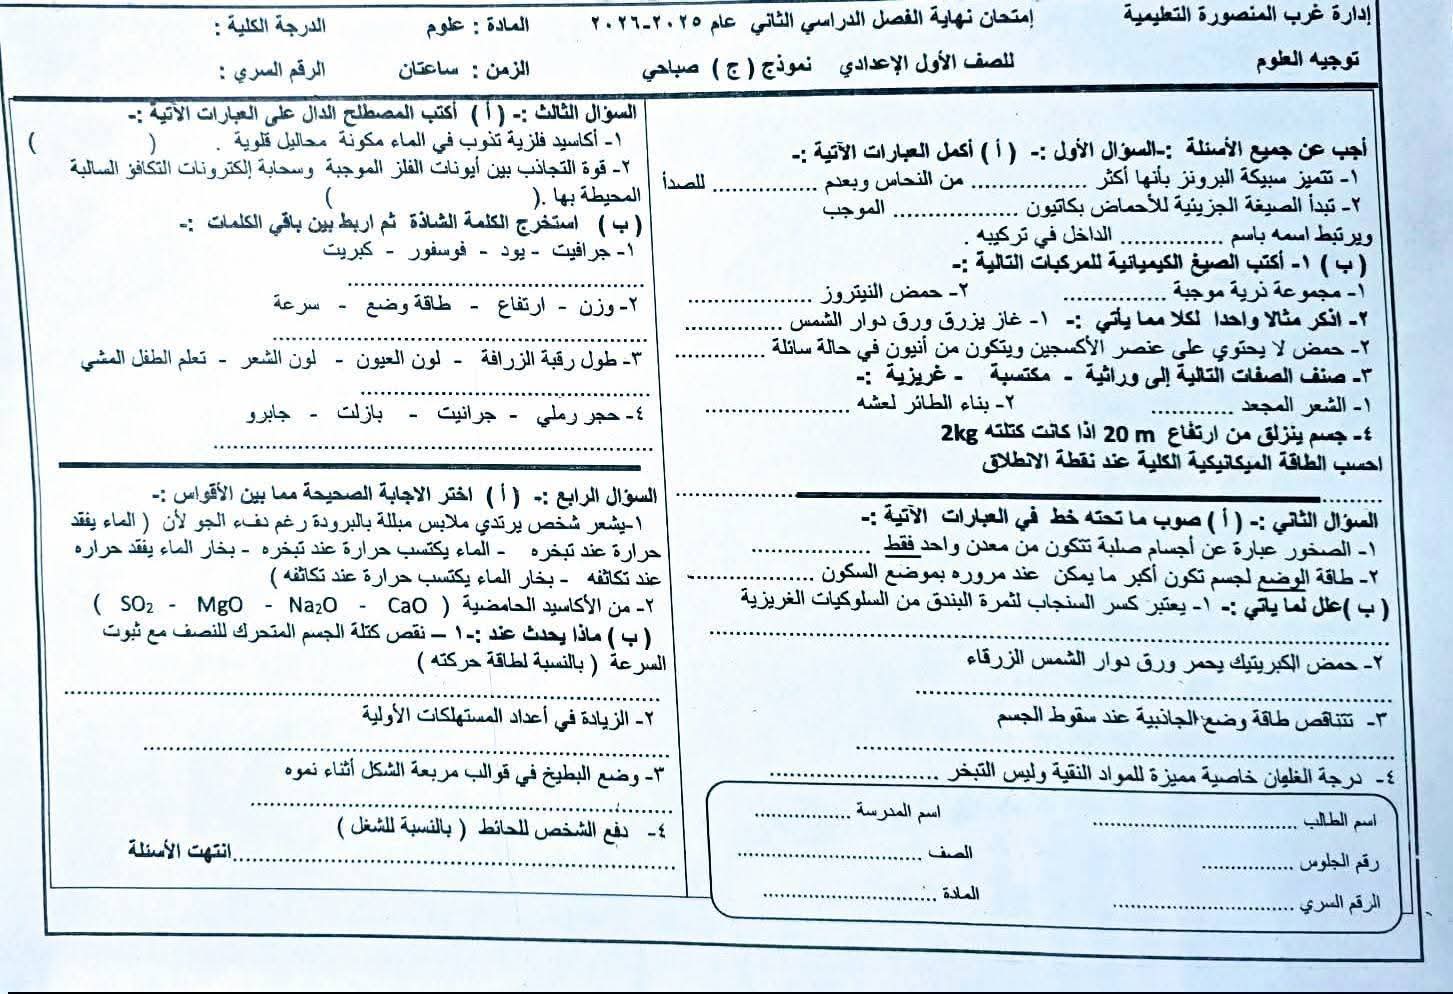 إدارة غرب المنصورة التعليمية
إمتحان نهاية الفصل الدراسي الثاني عام ٢٠٢٥-٢٠٢٦
المادة : علوم
الدرجة الكلية :
توجيه العلوم
للصف الأول الإعدادي نموذج ( ج ) صباحي
الزمن : ساعتان
الرقم السري :
أجب عن جميع الأسئلة :-السؤال الأول :- ( أ ) أكمل العبارات الآتية :-
١- تتميز سبيكة البرونز بأنها أكثر ................ من النحاس وبعدم ............... للصدأ
٢- تبدأ الصيغة الجزيئية للأحماض بكاتيون .................. الموجب
ويرتبط اسمه باسم .............. الداخل في تركيبه .
( ب ) ١- أكتب الصيغ الكيميائية للمركبات التالية :-
١- مجموعة ذرية موجبة ............... ٢- حمض النيتروز ..................
٢- اذكر مثالا واحدا لكلا مما يأتي :- ١- غاز يزرق ورق دوار الشمس ..............
٢- حمض لا يحتوي على عنصر الأكسجين ويتكون من أنيون في حالة سائلة .............
٣- صنف الصفات التالية إلى وراثية - مكتسبة - غريزية :-
١- الشعر المجعد ............ ٢- بناء الطائر لعشه .....................
٤- جسم ينزلق من ارتفاع 20 m اذا كانت كتلته 2kg
احسب الطاقة الميكانيكية الكلية عند نقطة الانطلاق
السؤال الثاني :- ( أ ) صوب ما تحته خط في العبارات الآتية :-
١- الصخور عبارة عن أجسام صلبة تتكون من معدن واحد فقط .................
٢- طاقة الوضع لجسم تكون أكبر ما يمكن عند مروره بموضع السكون ..................
( ب )علل لما يأتي :- ١- يعتبر كسر السنجاب لثمرة البندق من السلوكيات الغريزية
..................................................
٢- حمض الكبريتيك يحمر ورق دوار الشمس الزرقاء
..................................................
٣- تتناقص طاقة وضع الجاذبية عند سقوط الجسم
..................................................
٤- درجة الغلهان خاصية مميزة للمواد النقية وليس التبخر ........................
اسم الطالب .............................. اسم المدرسة ..............
رقم الجلوس .............. الصف ...........................
الرقم السري .......................... المادة .........................
السؤال الثالث :- ( أ ) أكتب المصطلح الدال على العبارات الآتية :-
١- أكاسيد فلزية تذوب في الماء مكونة محاليل قلوية . ( )
٢- قوة التجاذب بين أيونات الفلز الموجبة وسحابة إلكترونات التكافؤ السالبة
المحيطة بها .( )
( ب ) استخرج الكلمة الشاذة ثم اربط بين باقي الكلمات :-
١- جرافيت - يود - فوسفور - كبريت
..................................................
٢- وزن - ارتفاع - طاقة وضع - سرعة
..................................................
٣- طول رقبة الزرافة - لون العيون - لون الشعر - تعلم الطفل المشي
..................................................
٤- حجر رملي - جرانيت - بازلت - جابرو
..................................................
السؤال الرابع :- ( أ ) اختر الاجابة الصحيحة مما بين الأقواس :-
١-يشعر شخص يرتدي ملابس مبللة بالبرودة رغم دفء الجو لأن ( الماء يفقد
حرارة عند تبخره - الماء يكتسب حرارة عند تبخره - بخار الماء يفقد حراره
عند تكاثفه - بخار الماء يكتسب حرارة عند تكاثفه )
٢- من الأكاسيد الحامضية ( SO₂ - MgO - Na₂O - CaO )
( ب ) ماذا يحدث عند :-١ – نقص كتلة الجسم المتحرك للنصف مع ثبوت
السرعة ( بالنسبة لطاقة حركته )
..................................................
٢- الزيادة في أعداد المستهلكات الأولية
..................................................
٣- وضع البطيخ في قوالب مربعة الشكل أثناء نموه
..................................................
٤- دفع الشخص للحائط ( بالنسبة للشغل )
..................................................انتهت الأسئلة